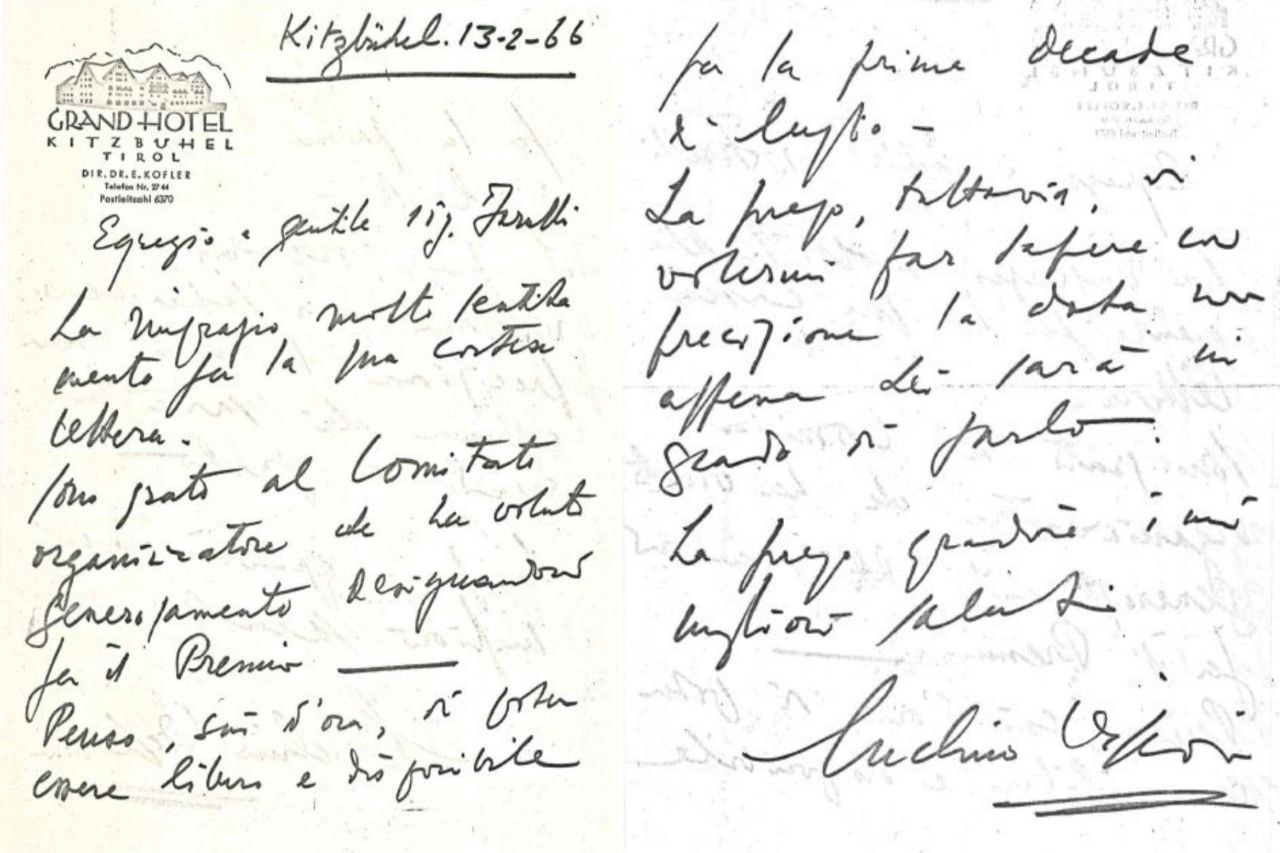 Kitzbühel. 13-2-66
GRAND-HOTEL
KITZBUHEL
TIROL
DIR. DR. E. KOFLER
Telefon Nr. 27 44
Postleitzahl 6370
Egregio e gentile sig.
La ringrazio, molto sentita
mente per la sua cortese
lettera.
Sono grato al Comitato
organizzatore che ha voluto
generosamente designandomi
per il Premio —
Penso, sin d'ora, di poter
essere libero e disponibile
per la prima decade
di luglio -
La prego, tuttavia, di
volermi far sapere con
precisione la data non
appena Lei sarà in
grado di farlo.
La prego gradire i miei
migliori saluti
Luchino Visconti